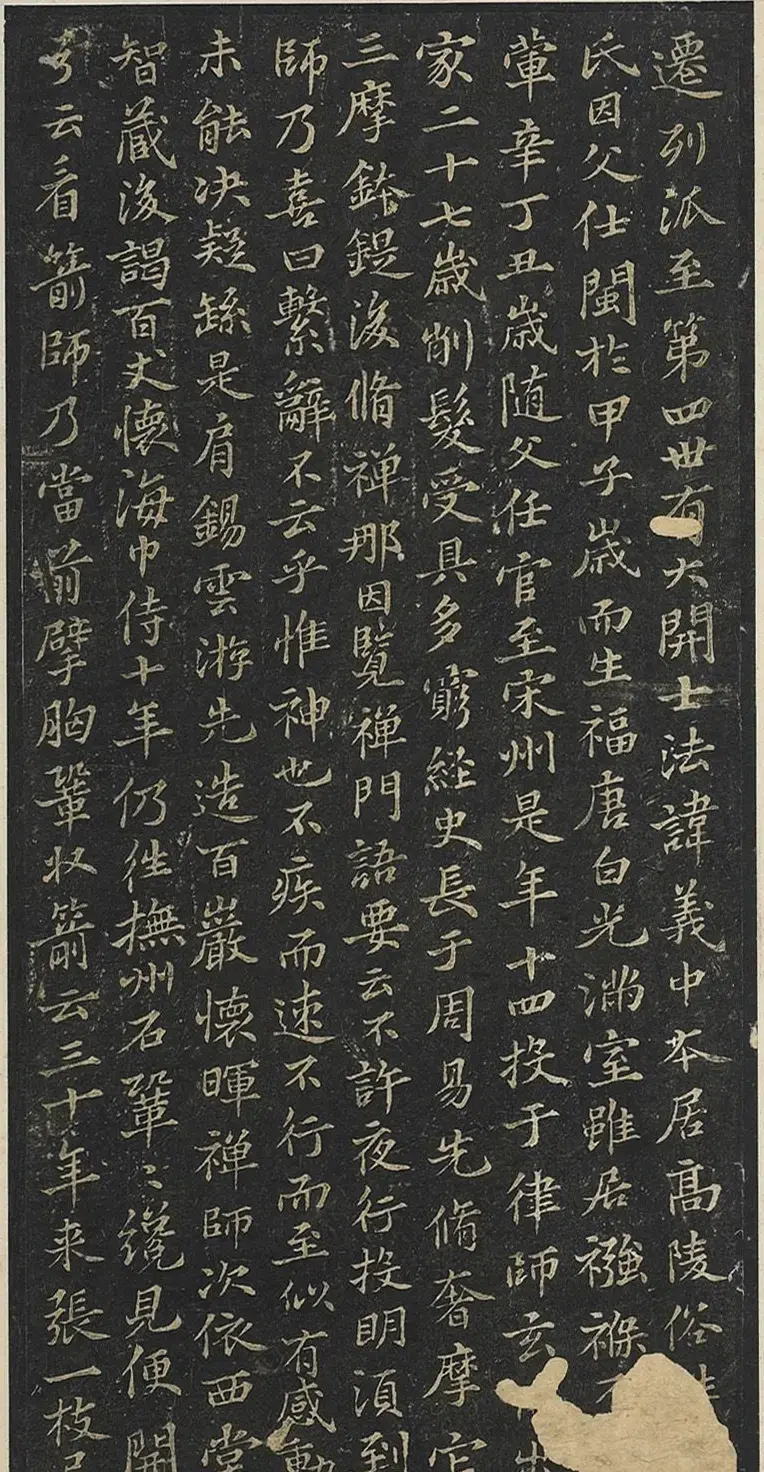 遷列派至第四世有大開士法諱義中本居高陵俗
氏因父仕閩於甲子歲而生福唐白光滿室雖居襁褓不
葷辛丁丑歲随父任官至宋州是年十四投于律師玄
家二十七歲削髮受具多窮経史長于周易先脩奢摩它
三摩鉢鍉後脩禅那因覽禅門語要云不許夜行投明須到
師乃喜曰繫辭不云乎惟神也不疾而速不行而至似有感動
未能决疑繇是肩錫雲游先造百巖懷暉禅師次依西堂
智蔵後謁百丈懷海巾侍十年仍徃撫州石鞏〻纔見便開
弓云看箭師乃當前擘胸鞏收箭云三十年来張一枝弓